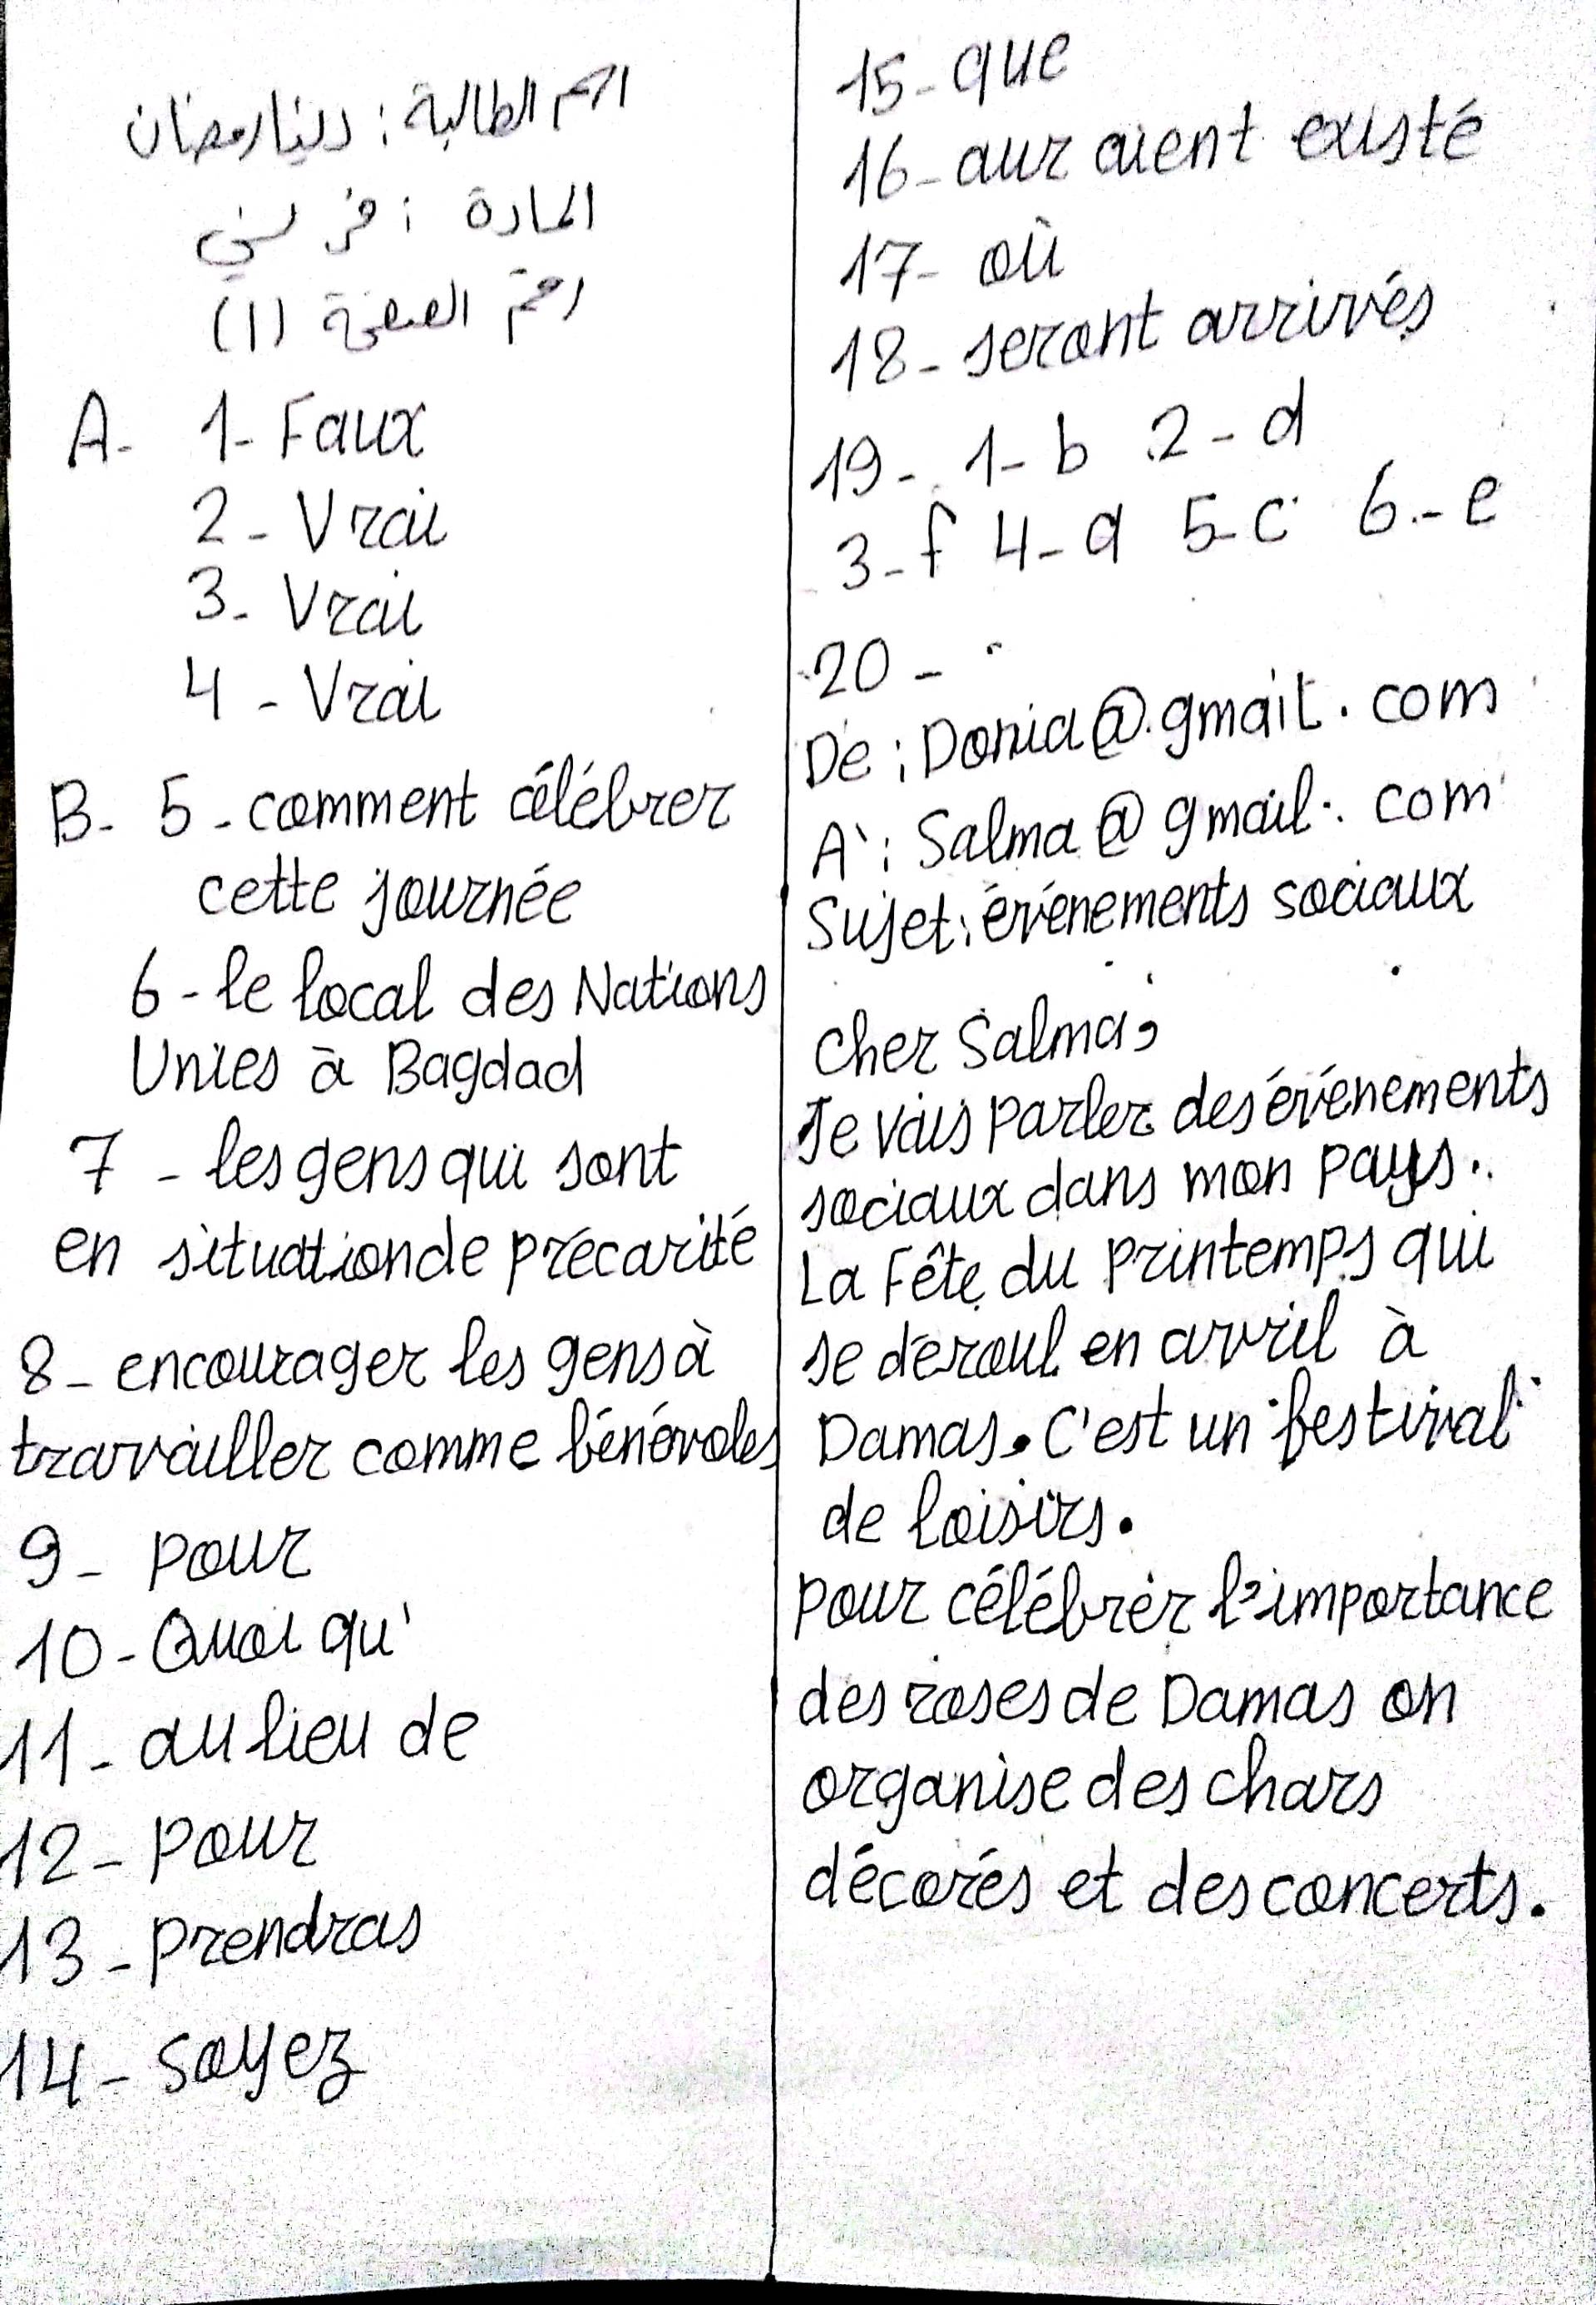 اسم الطالبة : دنيا رمضان
المادة : فرنسي
رقم الصفحة (١)
A- 1- Faux
2 - Vrai
3 - Vrai
4 - Vrai
B- 5 - comment célébrer
cette journée
6 - le local des Nations
Unies à Bagdad
7 - les gens qui sont
en situation de précarité
8 - encourager les gens à
travailler comme bénévoles
9 - pour
10 - Quoi qu'
11 - au lieu de
12 - pour
13 - prendras
14 - soyez
15 - que
16 - auraient existé
17 - où
18 - seront arrivés
19 - 1- b 2 - d
3 - f 4 - a 5 - c 6 - e
20 -
De : Donia@gmail.com
À : Salma@gmail.com
Sujet : événements sociaux
cher Salma,
Je vais parler des événements
sociaux dans mon pays.
La Fête du printemps qui
se déroul en avril à
Damas. C'est un festival
de loisirs.
pour célébrer l'importance
des roses de Damas on
organise des chars
décorés et des concerts.